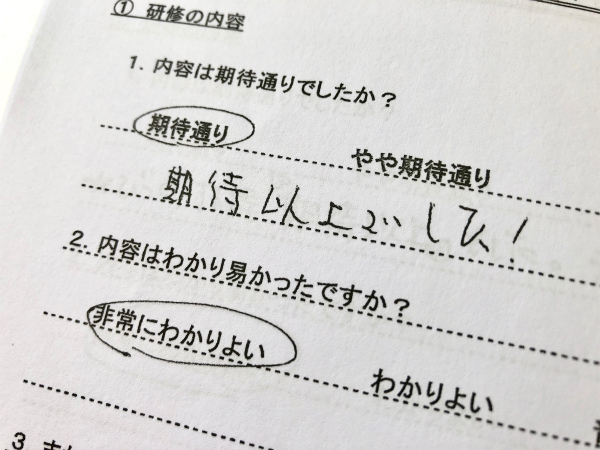 ① 研修の内容
1. 内容は期待通りでしたか？
期待通り やや期待通り
期待以上でした！
2. 内容はわかり易かったですか？
非常にわかりよい わかりよい
3